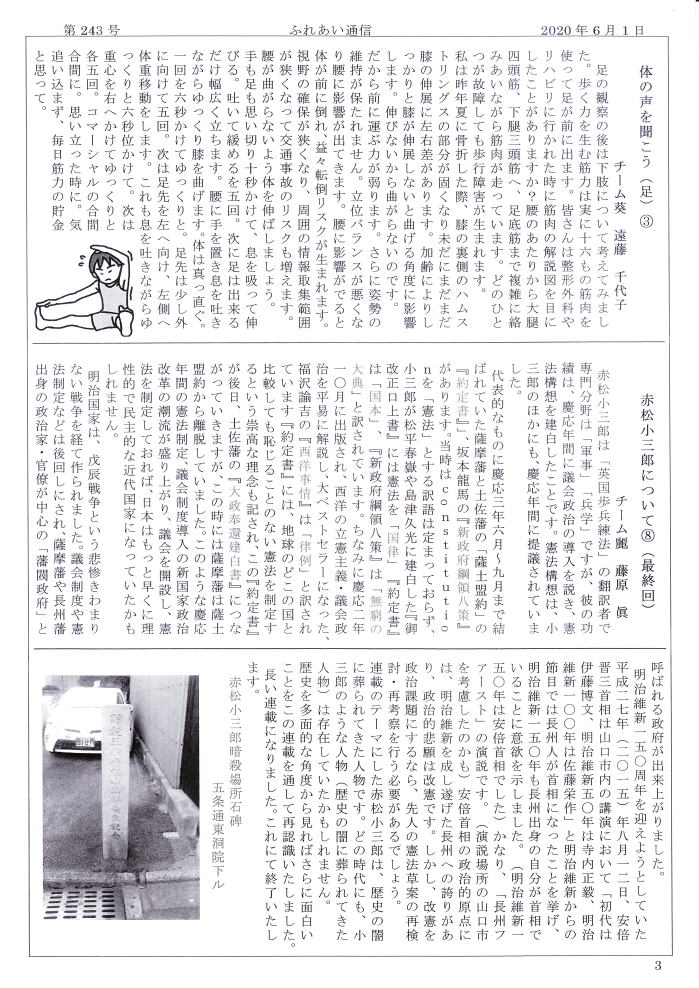 第 243 号
ふれあい通信
2020 年 6 月 1 日
体の声を聞こう(足)③
チーム葵 遠藤 千代子
足の観察の後は下肢について考えてみまし
た。歩く力を生む筋力は実に十六もの筋肉を
使って足が前に出ます。皆さんは整形外科や
リハビリに行かれた時に筋肉の解説図を目に
したことがありますか?腰のあたりから大腿
四頭筋、下腿三頭筋へ、足底筋まで複雑に絡
みあいながら筋肉が走っています。どのひと
つが故障しても歩行障害が生まれます。
私は昨年夏に骨折した際、膝の裏側のハムス
トリングスの部分が固くなり未だにまだまだ
膝の伸展に左右差があります。加齢によりし
っかりと膝が伸展しないと曲げる角度に影響
します。伸びないから曲がらないのです。
だから前に運ぶ力が弱ります。さらに姿勢の
維持が保たれません。立位バランスが悪くな
り腰に影響が出てきます。腰に影響がでると
体が前に倒れ、益々転倒リスクが生まれます。
視野の確保が狭くなり、周囲の情報取集範囲
が狭くなって交通事故のリスクも増えます。
腰が曲がらないよう体を伸ばしましょう。
手も足も思い切り十秒かけて、息を吸って伸
びる。吐いて緩めるを五回。次に足は出来る
だけ幅広く立ちます。腰に手を置き息を吐き
ながらゆっくり膝を曲げます。体は真っ直ぐ。
一回を六秒かけてゆっくりと。足先は少し外
に向けて五回。次は足先を左へ向け、左側へ
体重移動をします。これも息を吐きながらゆ
っくりと六秒位かけて。次は
重心を右へかけてゆっくりと
各五回。コマーシャルの合間
合間に。思い立った時に。気
追い込まず、毎日筋力の貯金
と思って。
赤松小三郎について⑧(最終回)
チーム麗 藤原 眞
赤松小三郎は「英国歩兵練法」の翻訳者で
専門分野は「軍事」「兵学」ですが、彼の功
績は、慶応年間に議会政治の導入を説き、憲
法構想を建白したことです。憲法構想は、小
三郎のほかにも、慶応年間に提議されていま
した。
代表的なものに慶応三年六月~九月まで結
ばれていた薩摩藩と土佐藩の「薩土盟約」の
『約定書』、坂本龍馬の『新政府綱領八策』
があります。当時はconstitutio
nを「憲法」とする訳語は定まっておらず、
小三郎が松平春嶽や島津久光に建白した『御
改正口上書』には憲法を「国律」『約定書』
は「国本」、『新政府綱領八策』は「無窮の
大典」と訳されています。ちなみに慶応二年
一〇月に出版され、西洋の立憲主義・議会政
治を平易に解説し、大ベストセラーになった、
福沢諭吉の『西洋事情』は「律例」と訳され
ています『約定書』には、地球のどこの国と
比較しても恥じることのない憲法を制定す
るという崇高な理念も記され、この『約定書』
が後日、土佐藩の『大政奉還建白書』につな
がっていきますが、この時には薩摩藩は薩土
盟約から離脱していました。このような慶応
年間の憲法制定、議会制度導入の新国家政治
改革の潮流が盛り上がり、議会を開設し、憲
法を制定しておれば、日本はもっと早くに理
性的で民主的な近代国家になっていたかも
しれません。
明治国家は、戊辰戦争という悲惨きわまり
ない戦争を経て作られました。議会制度や憲
法制定などは後回しにされ、薩摩藩や長州藩
出身の政治家・官僚が中心の「藩閥政府」と
呼ばれる政府が出来上がりました。
明治維新一五〇周年を迎えようとしていた
平成二七年(二〇一五)年八月一二日、安倍
晋三首相は山口市内の講演において「初代は
伊藤博文、明治維新五〇年は寺内正毅、明治
維新一〇〇年は佐藤栄作」と明治維新からの
節目では長州人が首相になったことを挙げ、
明治維新一五〇年も長州出身の自分が首相で
いることに意欲を示しました。(明治維新一
五〇年は安倍首相でした)かなり、「長州フ
ァースト」の演説です。(演説場所の山口市
を考慮したのかも)安倍首相の政治的原点に
は、明治維新を成し遂げた長州への誇りがあ
り、政治的悲願は改憲です。しかし、改憲を
政治課題にするなら、先人の憲法草案の再検
討・再考察を行う必要があるでしょう。
連載のテーマにした赤松小三郎は、歴史の闇
に葬られてきた人物です。どの時代にも、小
三郎のような人物(歴史の闇に葬られてきた
人物)は存在していたかもしれません。
歴史を多面的な角度から見ればさらに面白い
ことをこの連載を通して再認識いたしました。
長い連載になりました。これにて終了いたし
ます。
赤松小三郎暗殺場所石碑
五条通東洞院下ル
3